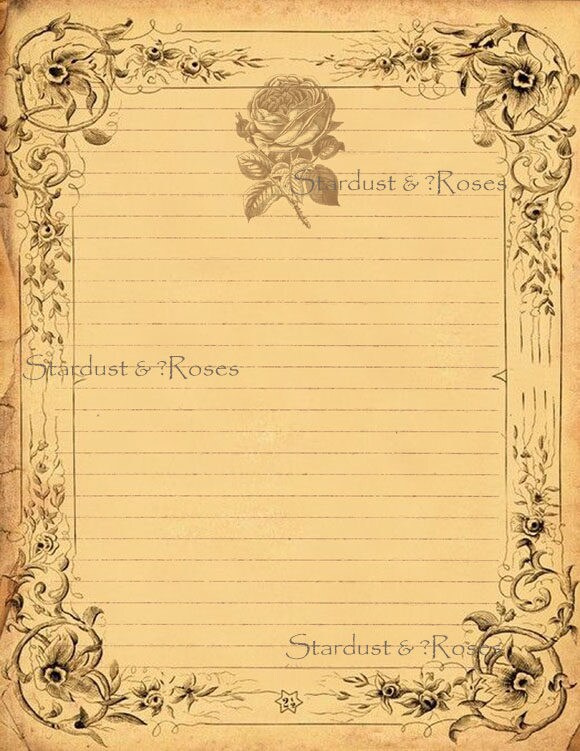 Stardust & ?Roses
Stardust & ?Roses
Stardust & ?Roses